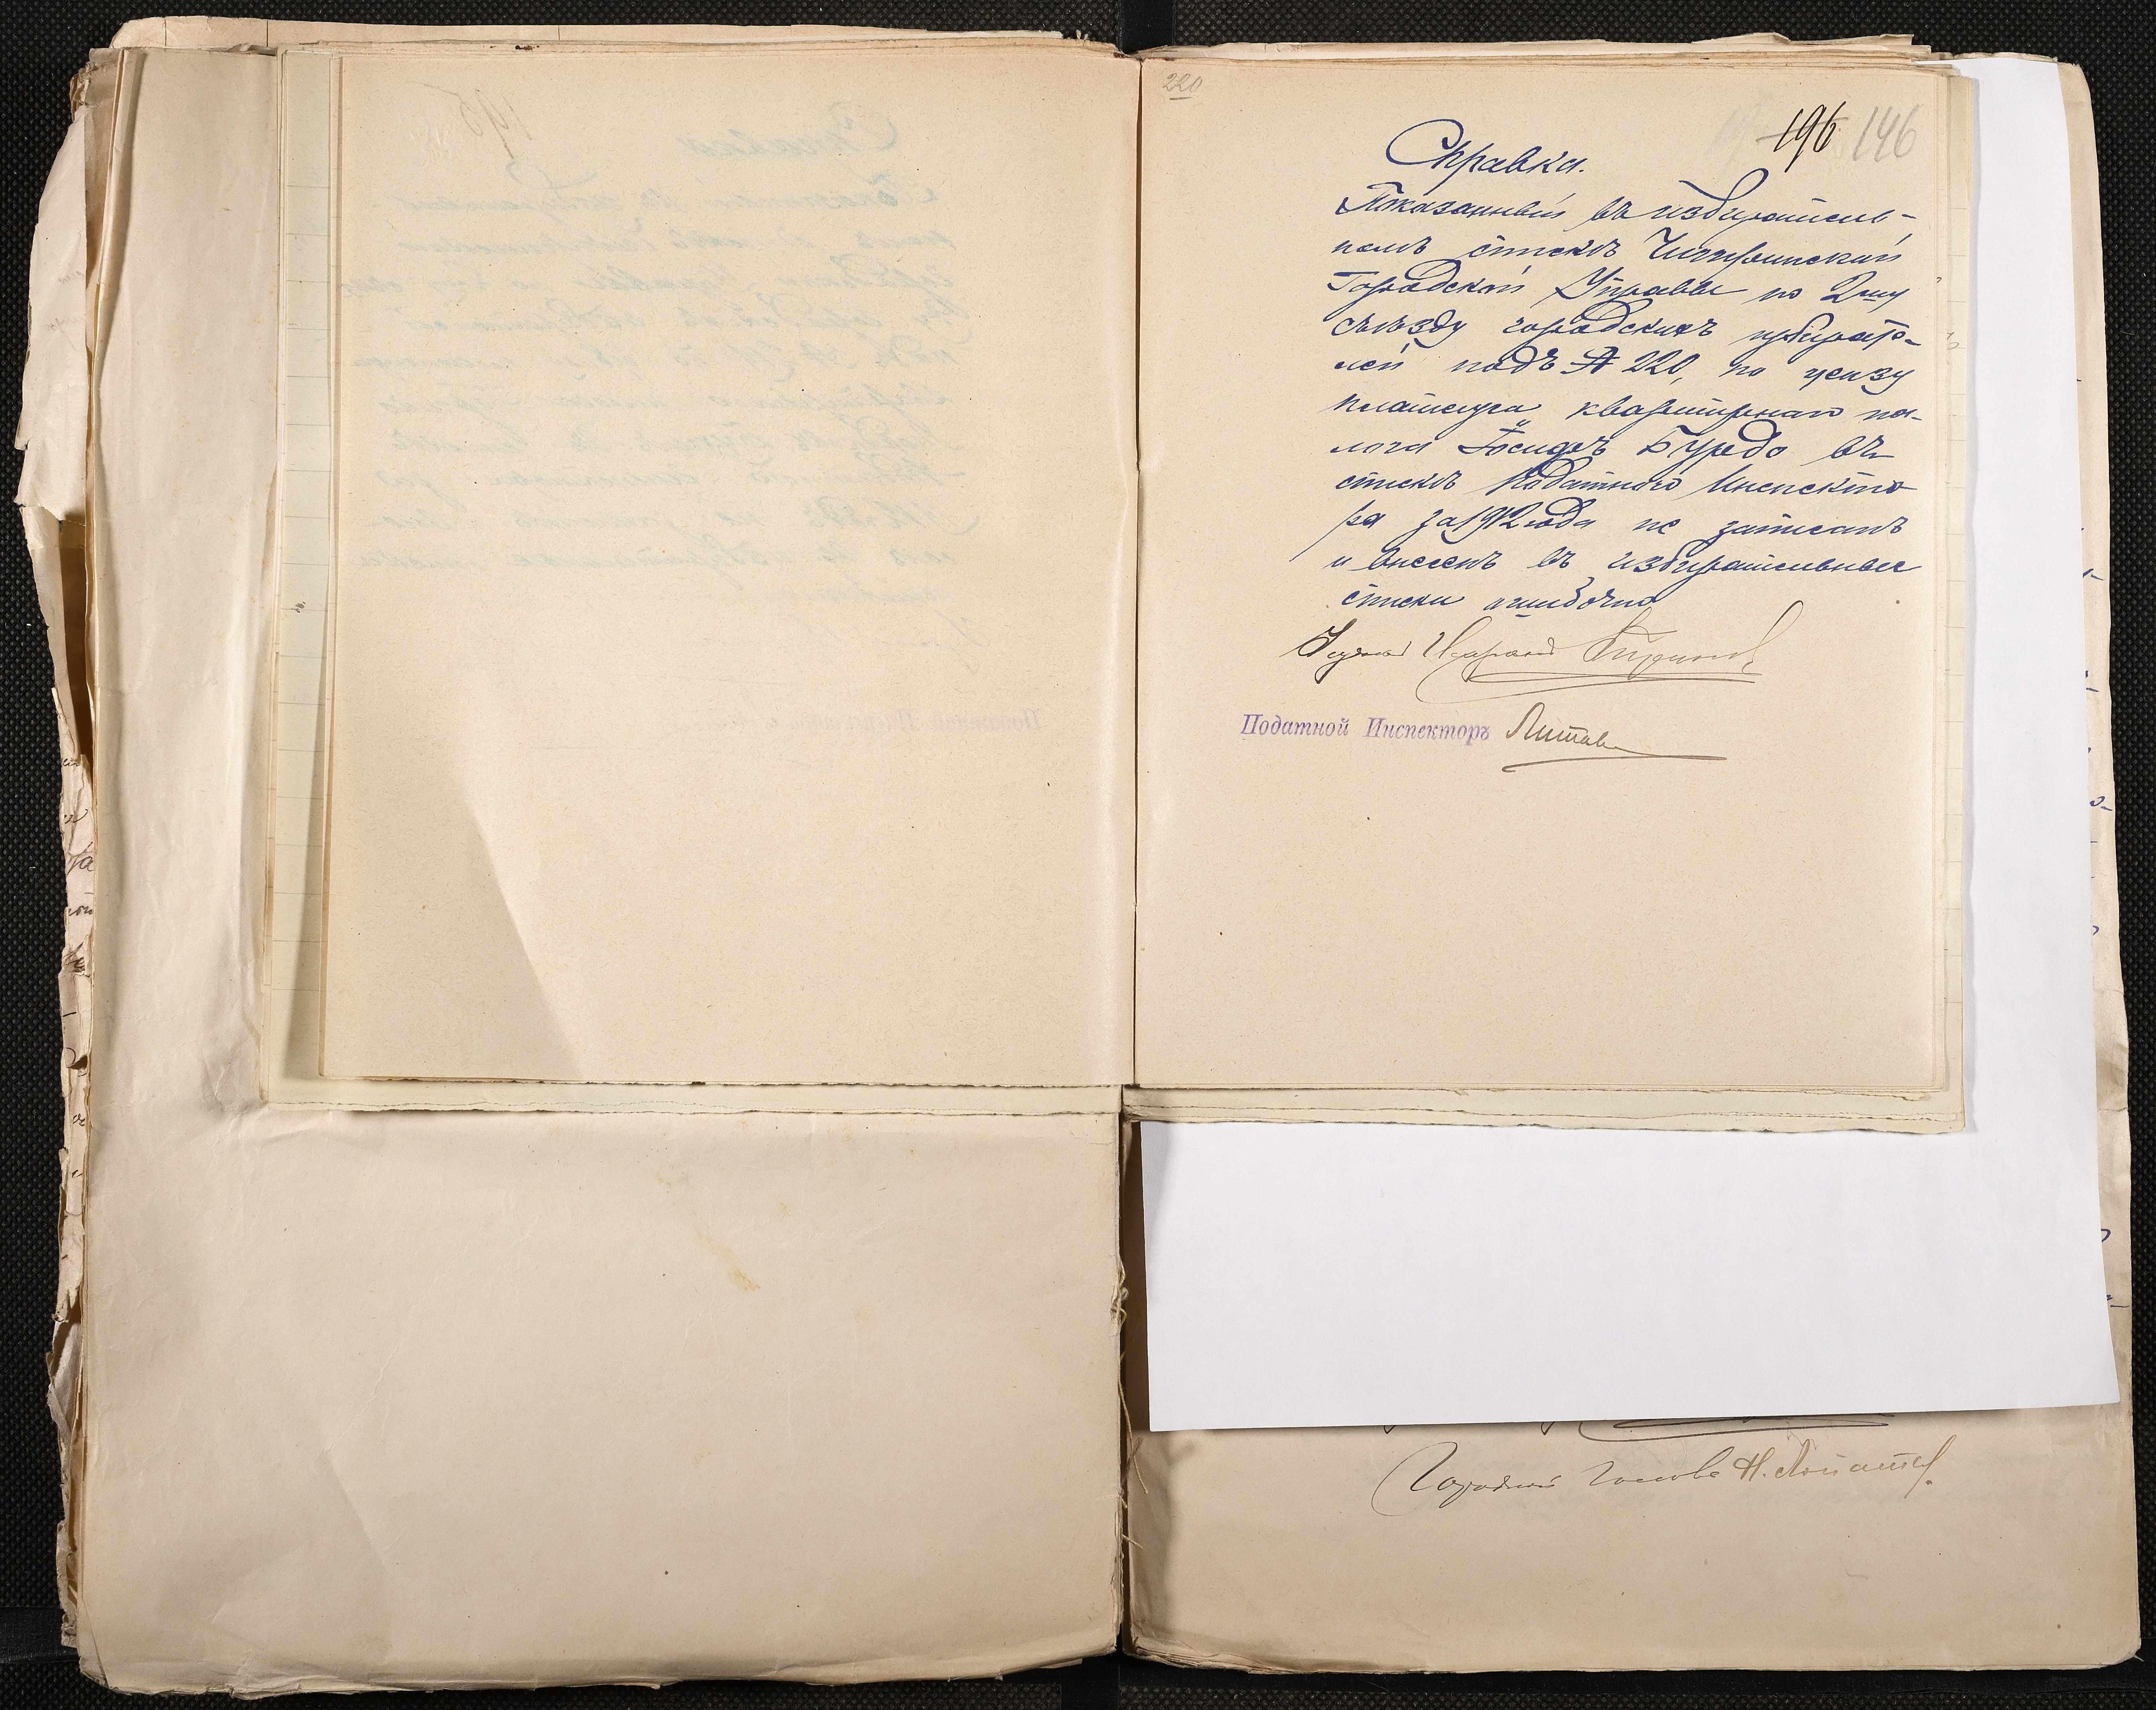 220
196 146
Справка.
Показанный въ избиратель-
номъ спискѣ Чигиринской
Городской Управы по 2му
съѣзду городскихъ избирате-
лей подъ № 220, по цензу
плательщика квартирнаго на-
лога Іосифъ Бурдо въ
спискѣ Податного Инспекто-
ра за 1912 года не записанъ
и внесенъ въ избирательные
списки ошибочно
Податной Инспекторъ
Городской Голова Н.